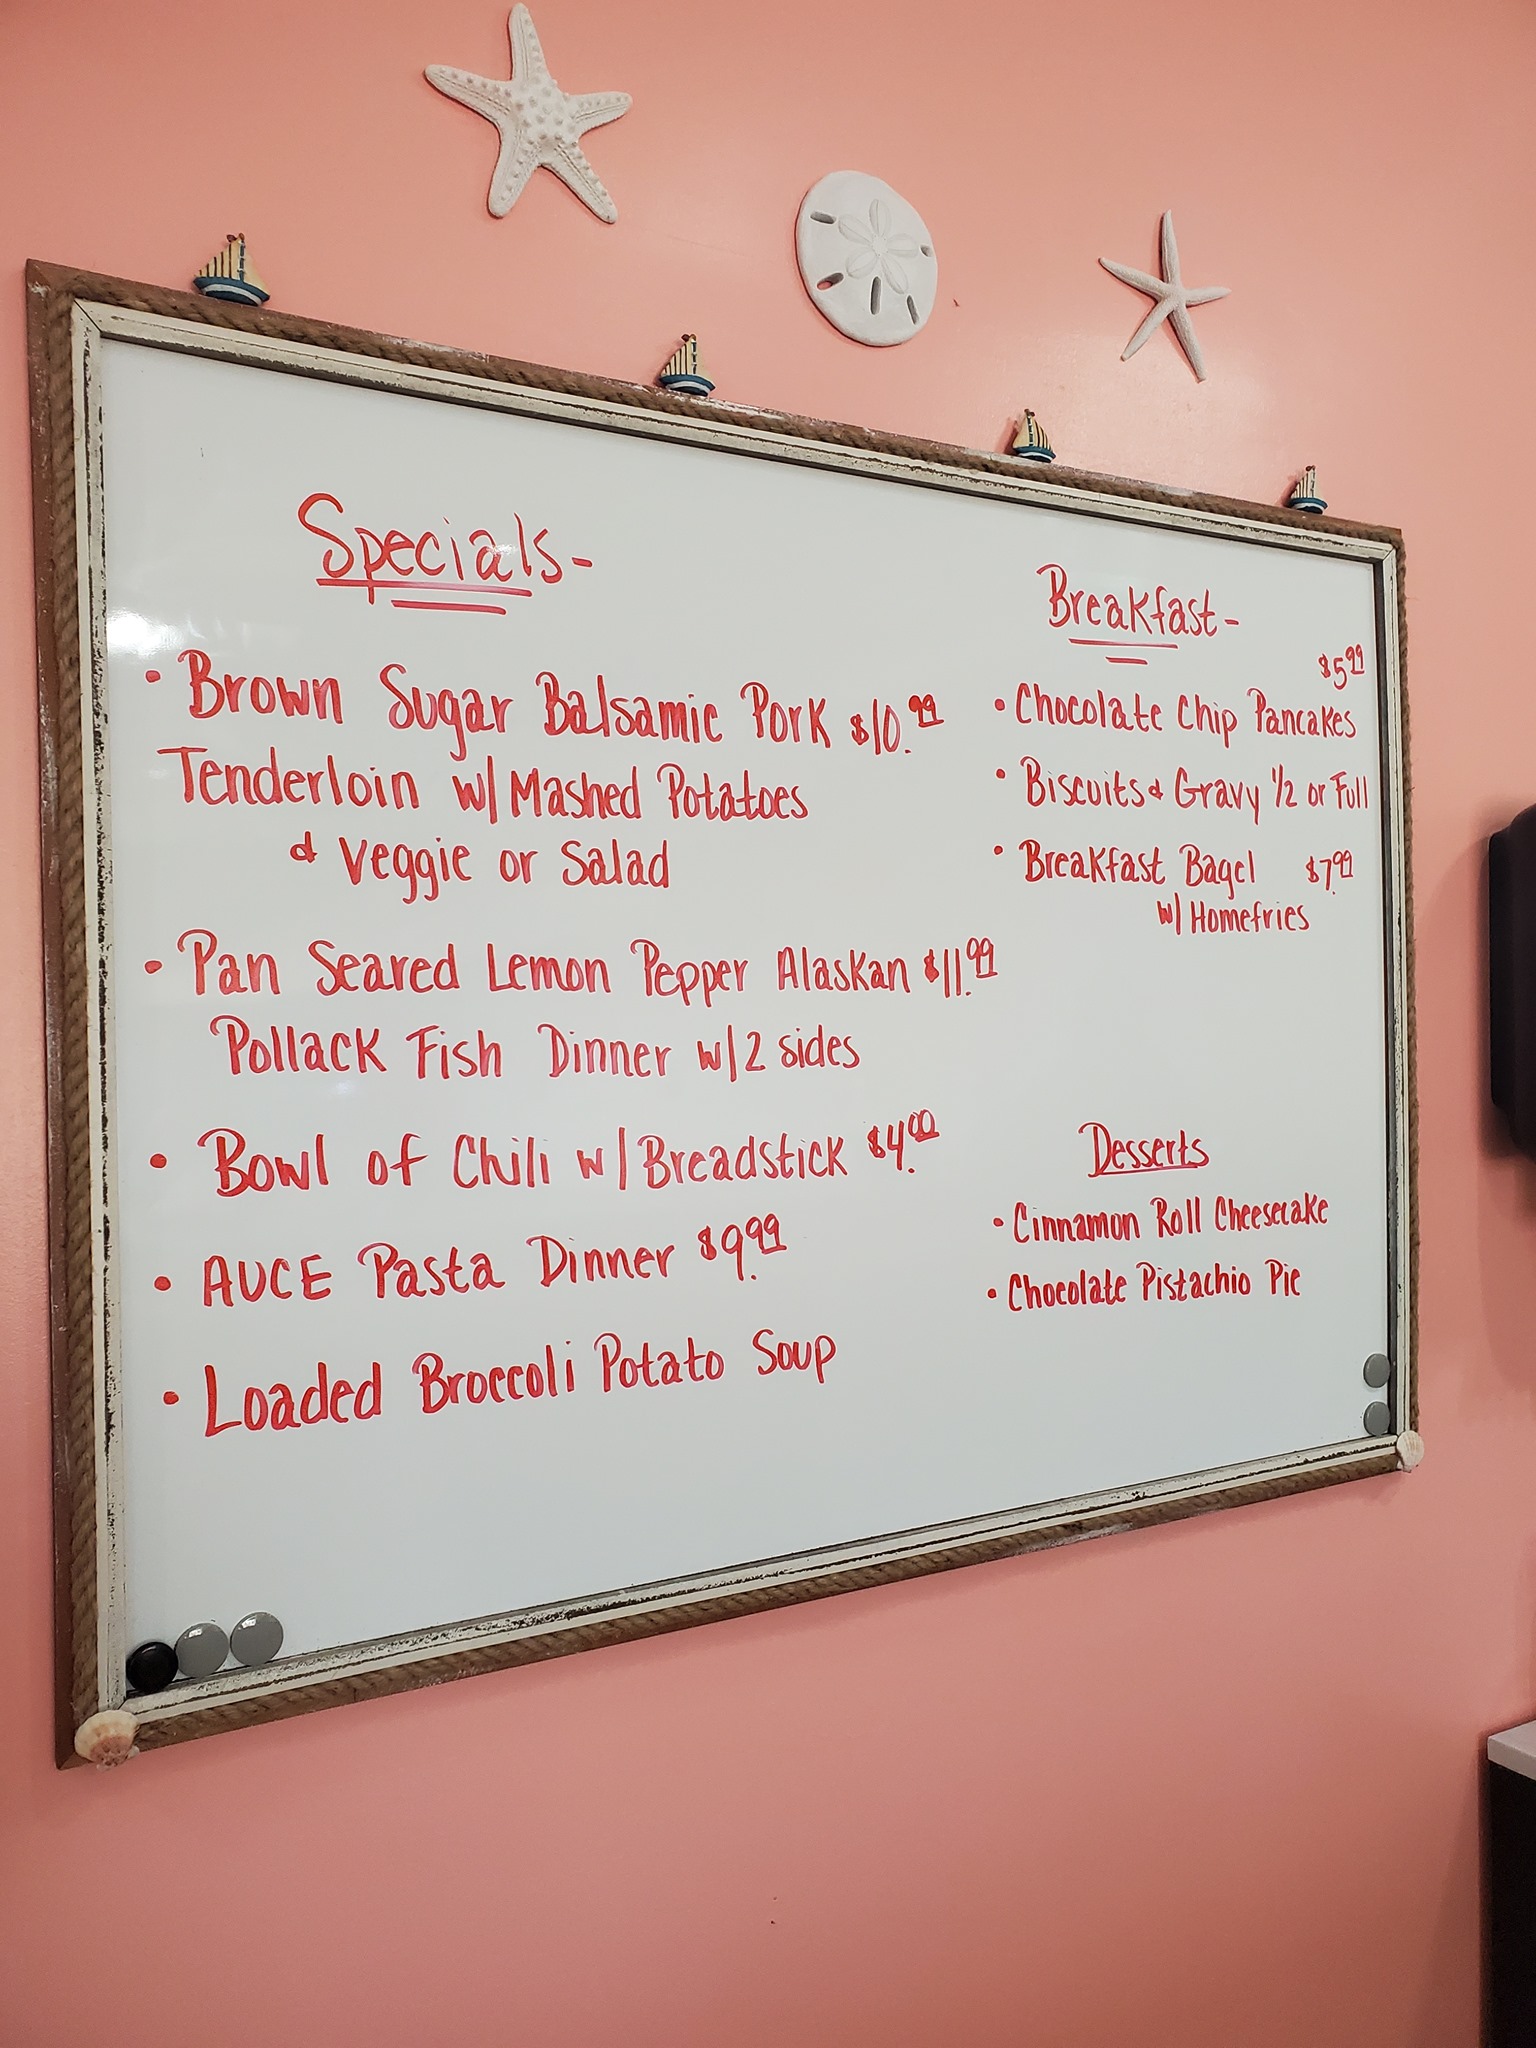 Specials-
• Brown Sugar Balsamic Pork $10.99
Tenderloin w/ Mashed Potatoes
& Veggie or Salad
• Pan Seared Lemon Pepper Alaskan $11.99
Pollack Fish Dinner w/ 2 sides
• Bowl of Chili w/ Breadstick $4.00
• AUCE Pasta Dinner $9.99
• Loaded Broccoli Potato Soup
Breakfast-
$5.99
• Chocolate Chip Pancakes
• Biscuits & Gravy 1/2 or Full
• Breakfast Bagel $7.99
w/ Homefries
Desserts
• Cinnamon Roll Cheesecake
• Chocolate Pistachio Pie